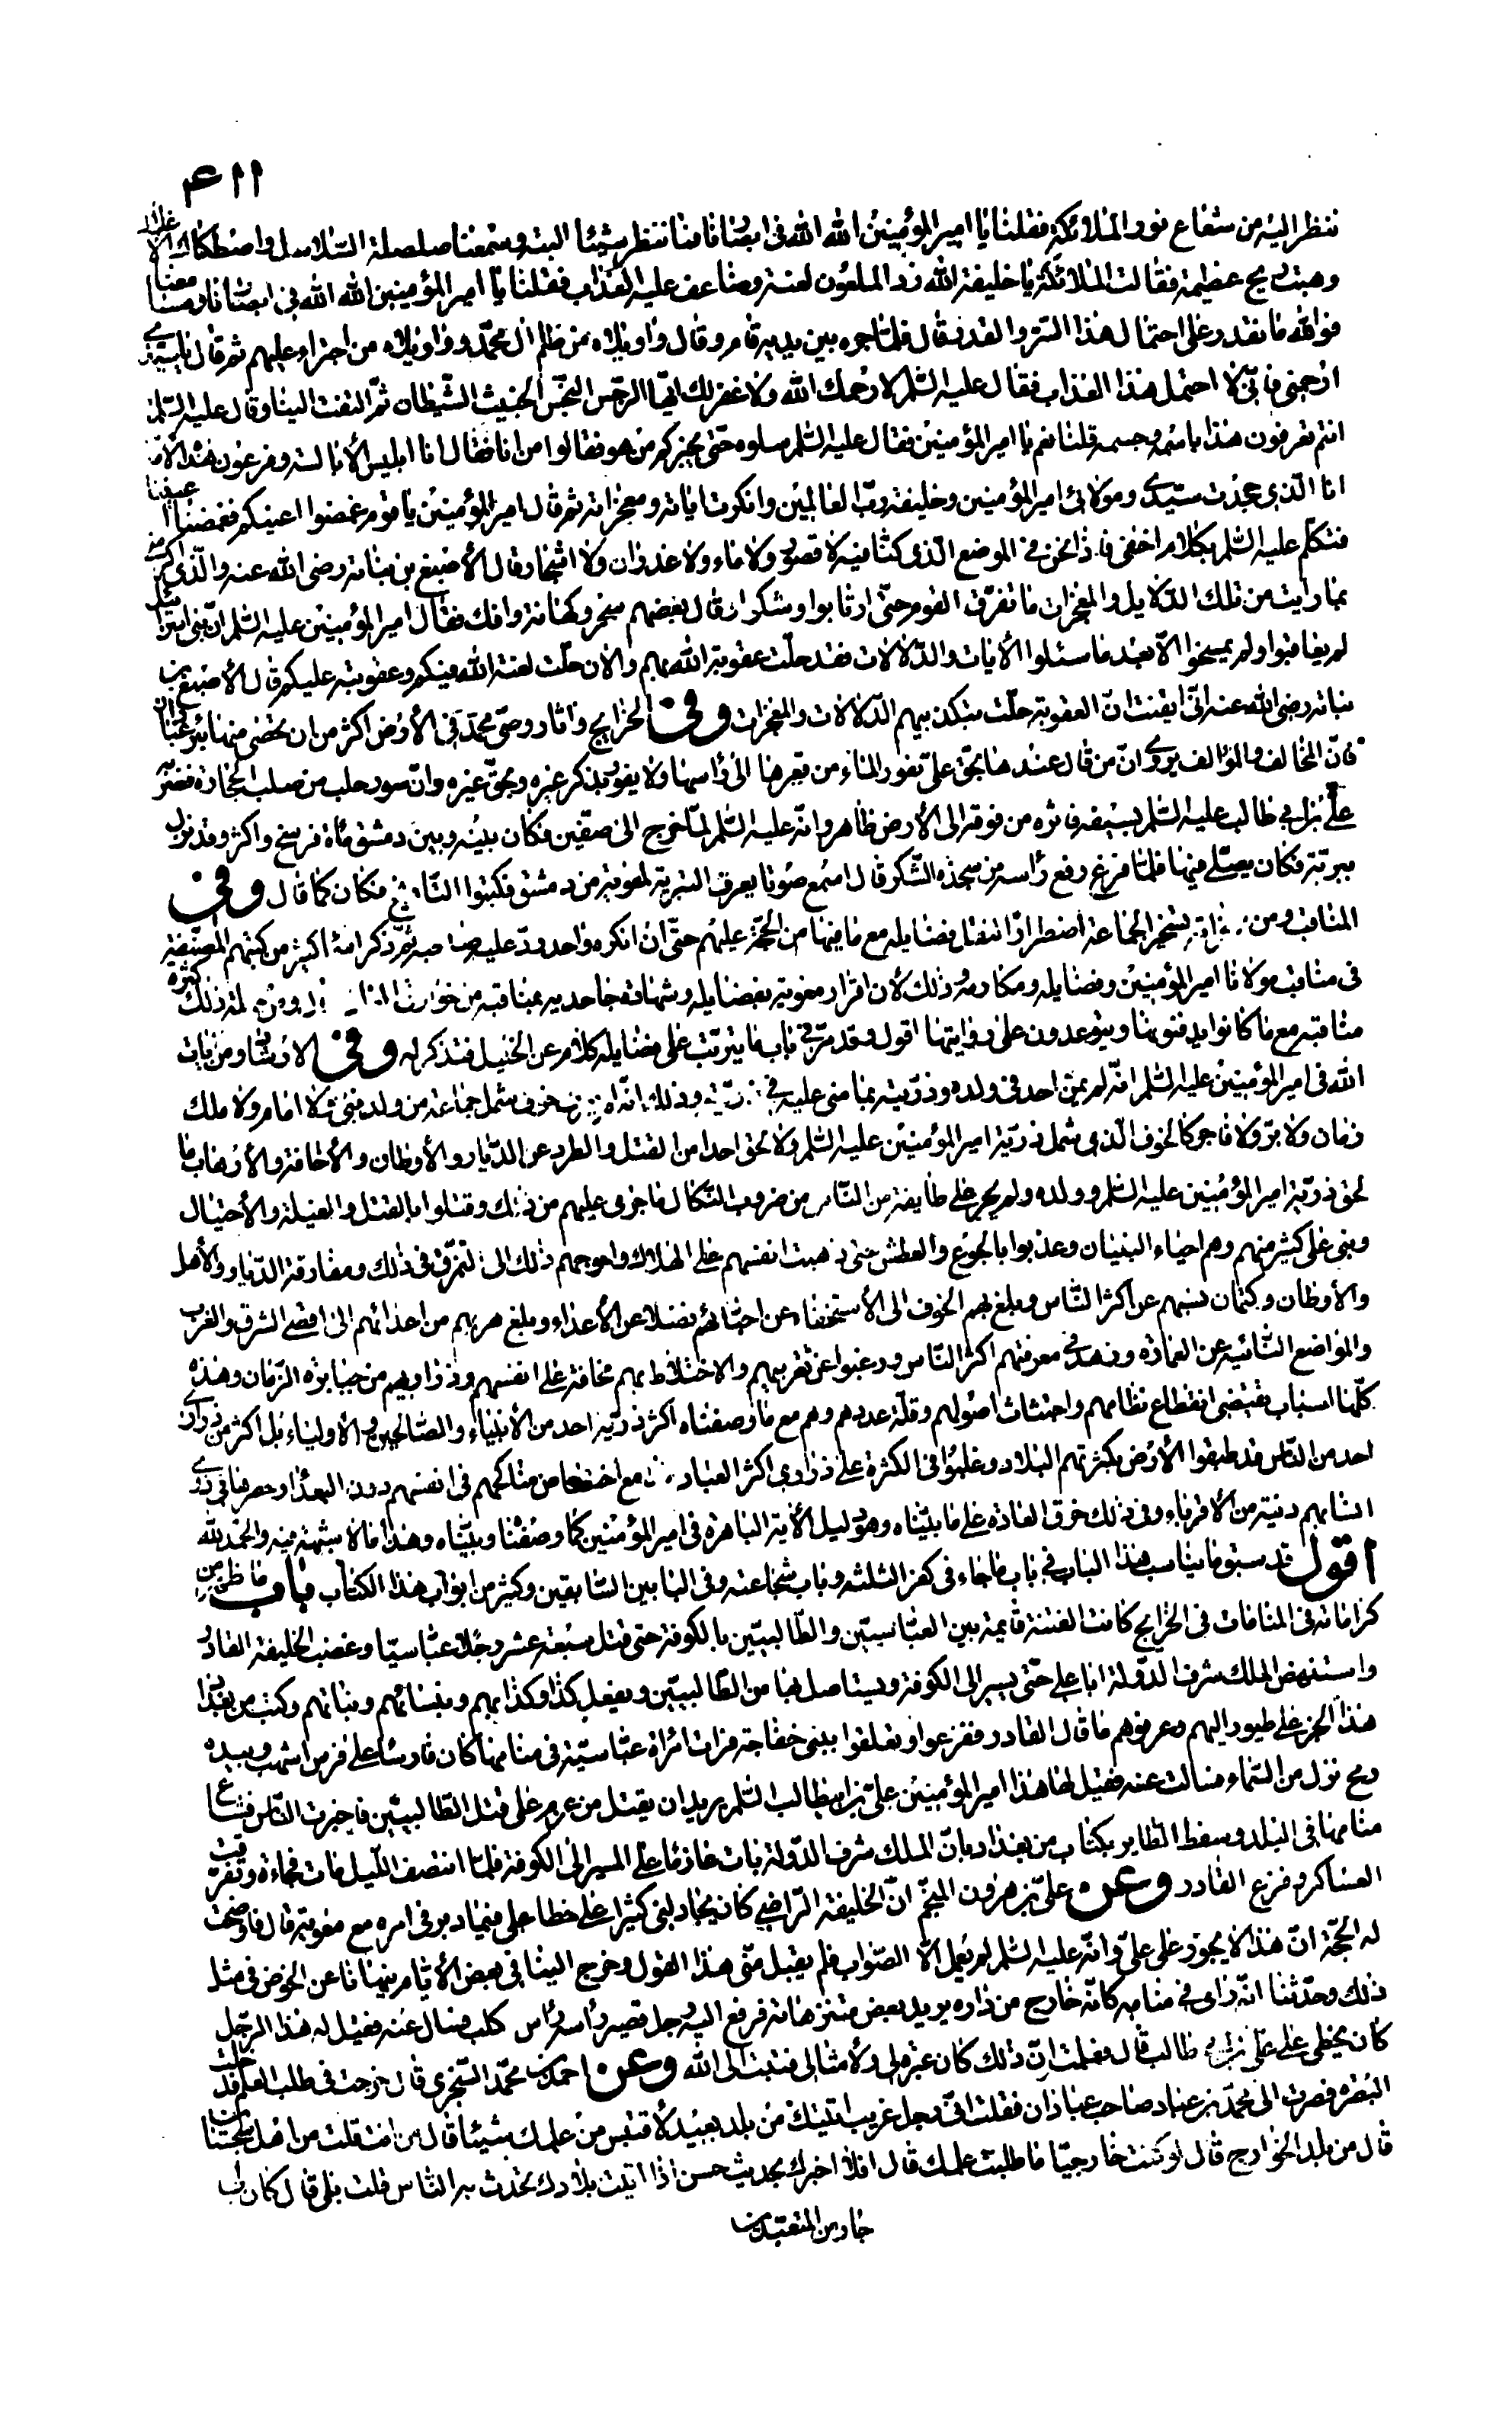 ٤١١
ننظر اليه من شعاع نور الملائكة فقلنا يا امير المؤمنين الله الله فى ابصارنا فما ننظر شيئا البتة وسمعنا صلصلة السلاسل واصطكاك الاغلال
وهبت ريح عظيمة فقالت الملائكة يا خليفة الله زد الملعون لعنة وضاعف عليه العذاب فقلنا يا امير المؤمنين الله الله فى ابصارنا ومسامعنا
فوالله ما نقدر على احتمال هذا السر والقدر قال فلما جره بين يديه قام وقال واويلاه من ظلم ال محمد وواويلاه من اجترائى عليهم ثم قال يا سيدى
ارحمنى فانى لا احتمل هذا العذاب فقال عليه السلم لا رحمك الله ولا غفر لك ايها الرجس النجس الخبيث الشيطان ثم التفت الينا وقال عليه السلم
انتم تعرفون هذا باسمه وجسمه قلنا نعم يا امير المؤمنين فقال عليه السلم سلوه حتى يخبركم من هو فقالوا من انت فقال انا ابليس الأبالسة وفرعون هذه الأمة
انا الذى جحدت سيدى ومولائى امير المؤمنين وخليفة رب العالمين وانكرت اياته ومعجزاته ثم قال امير المؤمنين يا قوم غمضوا اعينكم فغمضنا اعيننا
فتكلم عليه السلم بكلام اخفى فاذا نحن فى الموضع الذى كنا فيه لا قصور ولا ماء ولا غدران ولا اشجار قال الأصبغ بن نباتة رضى الله عنه والذى اكرمنى
بما رايت من تلك الدلايل والمعجزات ما تفرق القوم حتى ارتابوا وشكوا وقال بعضهم سحر وكهانة وافك فقال امير المؤمنين عليه السلم ان بنى اسرائيل
لم يعاقبوا ولم يمسخوا الا بعد ما سئلوا الأيات والدلالات فقد حلت عقوبة الله بهم والان حلت لعنة الله فيكم وعقوبته عليكم قال الأصبغ بن
نباتة رضى الله عنه انى ايقنت ان العقوبة حلت بتكذيبهم الدلالات والمعجزات وفى الخرايج واثار وصى محمد فى الأرض اكثر من ان تحصى منها بئر عبادان
فان المخالف والمؤالف يروى ان من قال عندها بحق على تفور الماء من قعرها الى راسها ولا يفور بذكر غيره وبحق غيره وان سور حلب من صلب الحجارة فضربه
على بن ابى طالب عليه السلم بسيفه فاثره من فوقه الى الأرض ظاهر وانه عليه السلم لما خرج الى صفين فكان بينه وبين دمشق ماة فرسخ واكثر وقد نزل
ببرية فكان يصلى فيها فلما فرغ ورفع رأسه من سجدة الشكر قال اسمع صوت بوق التبريز لمعوية من دمشق فكتبوا التاريخ فكان كما قال وفى
المناقب ومن تسخير الجماعة اضطرارا لنقل فضايله مع ما فيها من الحجة عليهم حتى ان انكره واحد رد عليه صاحبه ثم ذكر امة اكثر من كتبهم المصنفة
فى مناقب مولانا امير المؤمنين وفضايله ومكارمه وذلك لأن اقرار معوية بفضايله وشهادة جاحديه بمناقبه من خوارق ذلك كثرة
مناقبه مع ما كانوا يدفنونها ويتوعدون على روايتها اقول وقد مر فى باب ما يترتب على فضايله كلام عن الخليل فتذكر له وفى الارشاد ومن ايات
الله فى امير المؤمنين عليه السلم انه لم يمن احد فى ولده وذريته بما منى عليه فى ذريته وذلك انه لم يعرف خوف شمل جماعة من ولد نبى ولا امام ولا ملك
زمان ولا بر ولا فاجر كالخوف الذى شمل ذرية امير المؤمنين عليه السلم ولا لحق احدا من القتل والطرد عن الديار والأوطان والأخافة والأرهاب ما
لحق ذرية امير المؤمنين عليه السلم وولده ولم يجر على طايفة من الناس من ضروب النكال ما جرى عليهم من ذلك وقتلوا بالفتك والغيلة والأحتيال
وبنى على كثير منهم وهم احياء البنيان وعذبوا بالجوع والعطش حتى ذهبت انفسهم على الهلاك واحوجهم ذلك الى التمزق فى ذلك ومفارقة الديار والأهل
والأوطان وكتمان نسبهم عن اكثر الناس وبلغ بهم الخوف الى الأستخفاء عن احبائهم فضلا عن الأعداء وبلغ هربهم من اعدائهم الى اقصى الشرق والغرب
والمواضع النائية عن العمارة وزهد فى معرفتهم اكثر الناس ورغبوا عن تقريبهم والاختلاط بهم مخافة على انفسهم وذراريهم من جبابرة الزمان وهذه
كلها اسباب يقتضى انقطاع نظامهم واجتثاث اصولهم وقلة عددهم وهم مع ما وصفناه اكثر ذرية احد من الأنبياء والصالحين والأولياء بل اكثر من ذرارى
احد من الناس قد طبقوا الأرض بكثرتهم البلاد وغلبوا فى الكثرة على ذرارى اكثر العباد مع اختصاص مناكحهم فى انفسهم دون البعداء وحصرها فى ذوى
انسابهم دنية من الأقرباء وفى ذلك خرق العادة على ما بيناه وهو دليل الأية الباهرة فى امير المؤمنين كما وصفنا وبيناه وهذا ما لا شبهة فيه والحمد لله
اقول قد سبق ما يناسب هذا الباب فى باب ما جاء فى كفر الثلثة وباب شجاعته وفى البابين السابقين وكثير من ابواب هذا الكتاب باب ما ظهر من
كراماته فى المنامات فى الخرايج كانت الفتنة قايمة بين العباسيين والطالبيين بالكوفة حتى قتل سبعة عشر رجلا عباسيا وغضب الخليفة القادر
واستنهض الملك شرف الدولة ابا على حتى يسير الى الكوفة ويستاصل بها من الطالبيين ويفعل كذا وكذا بهم وبنسائهم وبناتهم وكتب من بغداد
هذا الخبر على طيور اليهم وعرفوهم ما قال القادر ففزعوا وتعلقوا ببنى خفاجة فرات امرأة عباسية فى منامها كان فارسا على فرس اشهب وبيده
رمح نزل من السماء فسالت عنه فقيل لها هذا امير المؤمنين على بن ابيطالب السلم يريد ان يقتل من عزم على قتل الطالبيين فاخبرت الناس فشاع
منامها فى البلد وسقط الطاير بكتاب من بغداد بان الملك شرف الدولة بات عازما على المسير الى الكوفة فلما انتصف الليل مات فجاءة وتفرقت
العساكر وفزع القادر وعن على بن هرون المنجم ان الخليفة الراضى كان يجادلنى كثيرا على خطا على فيما دبر فى امره مع معوية قال فاوضحت
له الحجة ان هذا لا يجوز على على وانه عليه السلم لم يعمل الا الصواب فلم يقبل منى هذا القول وخرج الينا فى بعض الأيام ينهانا عن الخوض فى مثل
ذلك وحدثنا انه راى فى منامه كانه خارج من داره يريد بعض متنزهاته فرفع اليه رجل قصير رأسه رأس كلب فسال عنه فقيل له هذا الرجل
كان يخطى على على بن ابى طالب قال فعلمت ان ذلك كان عبرة لى ولأمثالى فتبت الى الله وعن احمد بن محمد السنجرى قال خرجت فى طلب العلم فدخلت
البصرة فصرت الى محمد بن عباد صاحب عبادان فقلت انى رجل غريب اتيتك من بلد بعيد لأقتبس من علمك شيئا قال من انت قلت من اهل سجستان
قال من بلد الخوارج قال لو كنت خارجيا ما طلبت علمك قال افلا اخبرك بحديث حسن اذا اتيت بلادك تحدث به الناس قلت بلى قال كان لى
جار من المتعبدين